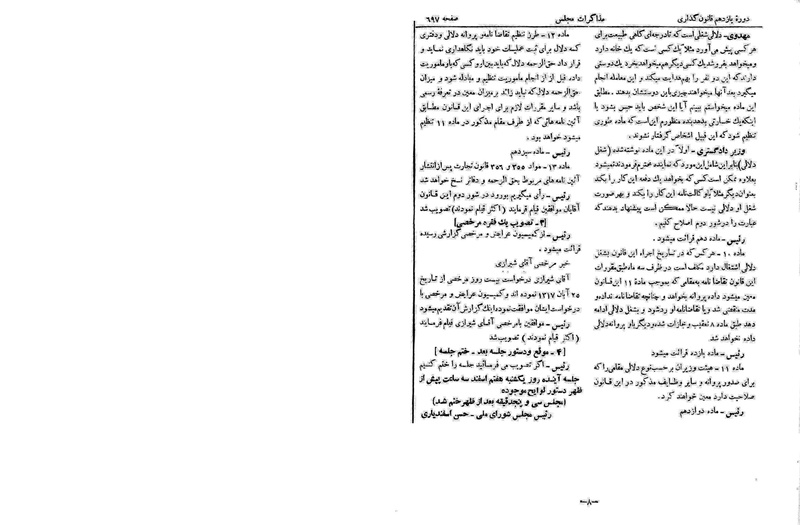 دورهٔ یازدهم قانون‌گذاری
مذاکرات مجلس
صفحه ۶۹۷
مهدوی – دلالی شغلی است که تا درجه‌ای کاهی طبیعت برای
هر کسی پیش می‌آورد مثلاً یک کسی است که یک خانه دارد
و میخواهد بفروشد یک کسی دیگر هم میخواهد بخرد یک دوستی
دارند که این دو نفر را بهم هدایت میکند و این معامله انجام
میگیرد بعد آنها میخواهند چیزی باین دوستشان بدهند . مطابق
این ماده میخواستم ببینم آیا این شخص باید حبس بشود یا
اینکه یک خسارتی بدهد بنده منظورم این است که ماده طوری
تنظیم شود که این قبیل اشخاص گرفتار نشوند .
وزیر دادگستری – اولاً در این ماده نوشته شده (شغل
دلالی) بنابراین شامل این مورد که نماینده محترم فرمودند نمیشود
بعلاوه ممکن است کسی که بخواهد یک دفعه این کار را بکند
بعنوان دیگر مثلاً با وکالت نامه این کار را بکند و بهر صورت
شغل او دلالی نیست حالا ممکن است پیشنهاد بدهند که
عبارت را در شور دوم اصلاح کنیم .
رئیس – ماده دهم قرائت میشود .
ماده ۱۰ – هر کس که در تاریخ اجراء این قانون بشغل
دلالی اشتغال دارد مکلف است در ظرف سه ماه طبق مقررات
این قانون تقاضا نامه بمقامی که بموجب مادهٔ ۱۱ این قانون
معین میشود داده پروانه بخواهد و چنانچه تقاضا نامه نداد و
مدت منقضی شد و یا تقاضا نامه او رد شود و بشغل دلالی ادامه
دهد طبق ماده ۸ تعقیب و مجازات شده و دیگر باو پروانه دلالی
داده نخواهد شد.
رئیس – ماده یازده قرائت میشود
ماده ۱۱ – هیئت وزیران بر حسب نوع دلالی مقامی را که
برای صدور پروانه و سایر وظایف مذکور در این قانون
صلاحیت دارد معین خواهند کرد.
رئیس – ماده دوازدهم
ماده ۱۲ – طرز تنظیم تقاضا نامه و پروانه دلالی و دفتری
که دلال برای ثبت عملیات خود باید نگاهداری نماید و
قرار داد حق الرحمه دلال که باید بین او و کسی که باو ماموریت
داده قبل از انجام ماموریت تنظیم و مبادله شود و میزان
حق الرحمه دلال که نباید زائد بر میزان معین در تعرفهٔ رسمی
باشد و سایر مقررات لازم برای اجرای این قانون مطابق
آئین نامه هائی که از طرف مقام مذکور در ماده ۱۱ تنظیم
میشود خواهد بود.
رئیس – ماده سیزدهم
ماده ۱۳ – مواد ۳۵۵ و ۳۵۶ قانون تجارت پس از انتشار
آئین نامه های مربوط بحق الرحمه و دفاتر نسخ خواهد شد
رئیس – رأی میگیریم بورود در شور دوم این قانون
آقایان موافقین قیام فرمایند ( اکثر قیام نمودند) تصویب شد
[۳– تصویب یک فقره مرخصی]
رئیس – از کمیسیون عرایض و مرخصی گزارشی رسیده
قرائت میشود .
خبر مرخصی آقای شیرازی
آقای شیرازی درخواست بیست روز مرخصی از تاریخ
۲۵ آبان ۱۳۱۷ نموده اند و کمیسیون عرایض و مرخصی با
درخواست ایشان موافقت نموده اینک گزارش آن تقدیم میشود
رئیس – موافقین با مرخصی آقای شیرازی قیام فرمایند
( اکثر قیام نمودند ) تصویب شد
[۴ – موقع و دستور جلسه بعد – ختم جلسه ]
رئیس – اگر تصویب می فرمائید جلسه را ختم کنیم
جلسه آینده روز یکشنبه هفتم اسفند سه ساعت پیش از
ظهر دستور لوایح موجوده
(مجلس سی و پنجدقیقه بعد از ظهر ختم شد.)
رئیس مجلس شورای ملی – حسن اسفندیاری
–۸–